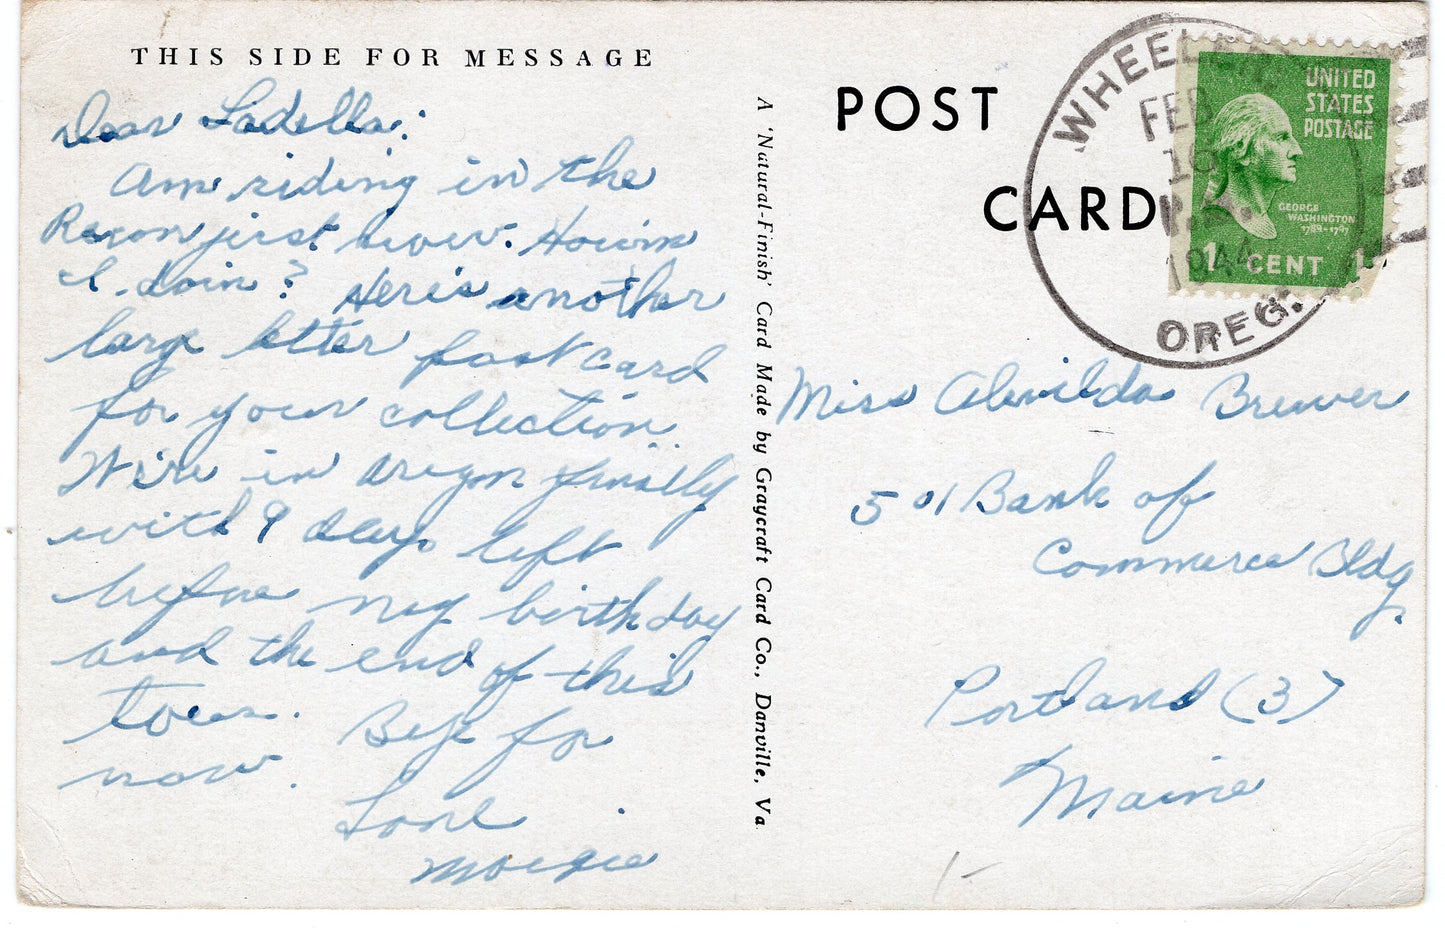 THIS SIDE FOR MESSAGE
Dear Ladella:
Am riding in the
Recon just now. Howim
I doin? Here's another
large letter post card
for your collection.
We're in Oregon finally
with 9 days left
before my birthday
and the end of this
tour. Bye for
now.
Love
Margie
A 'Natural-Finish' Card Made by Graycraft Card Co., Danville, Va.
POST
CARD
WHEELER
FEB
10
P.M.
1944
OREG.
UNITED
STATES
POSTAGE
GEORGE
WASHINGTON
1789-1797
1 CENT 1
Miss Alwilda Brewer
501 Bank of
Commerce Bldg.
Portland (3)
Maine
1-